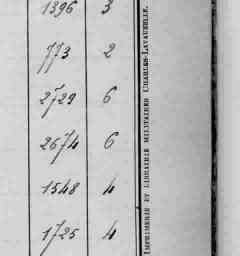 1396 3
773 2
2729 6
2674 6
1548 4
1725 4
IMPRIMERIE ET LIBRAIRIE MILITAIRES CHARLES-LAVAUZELLE.